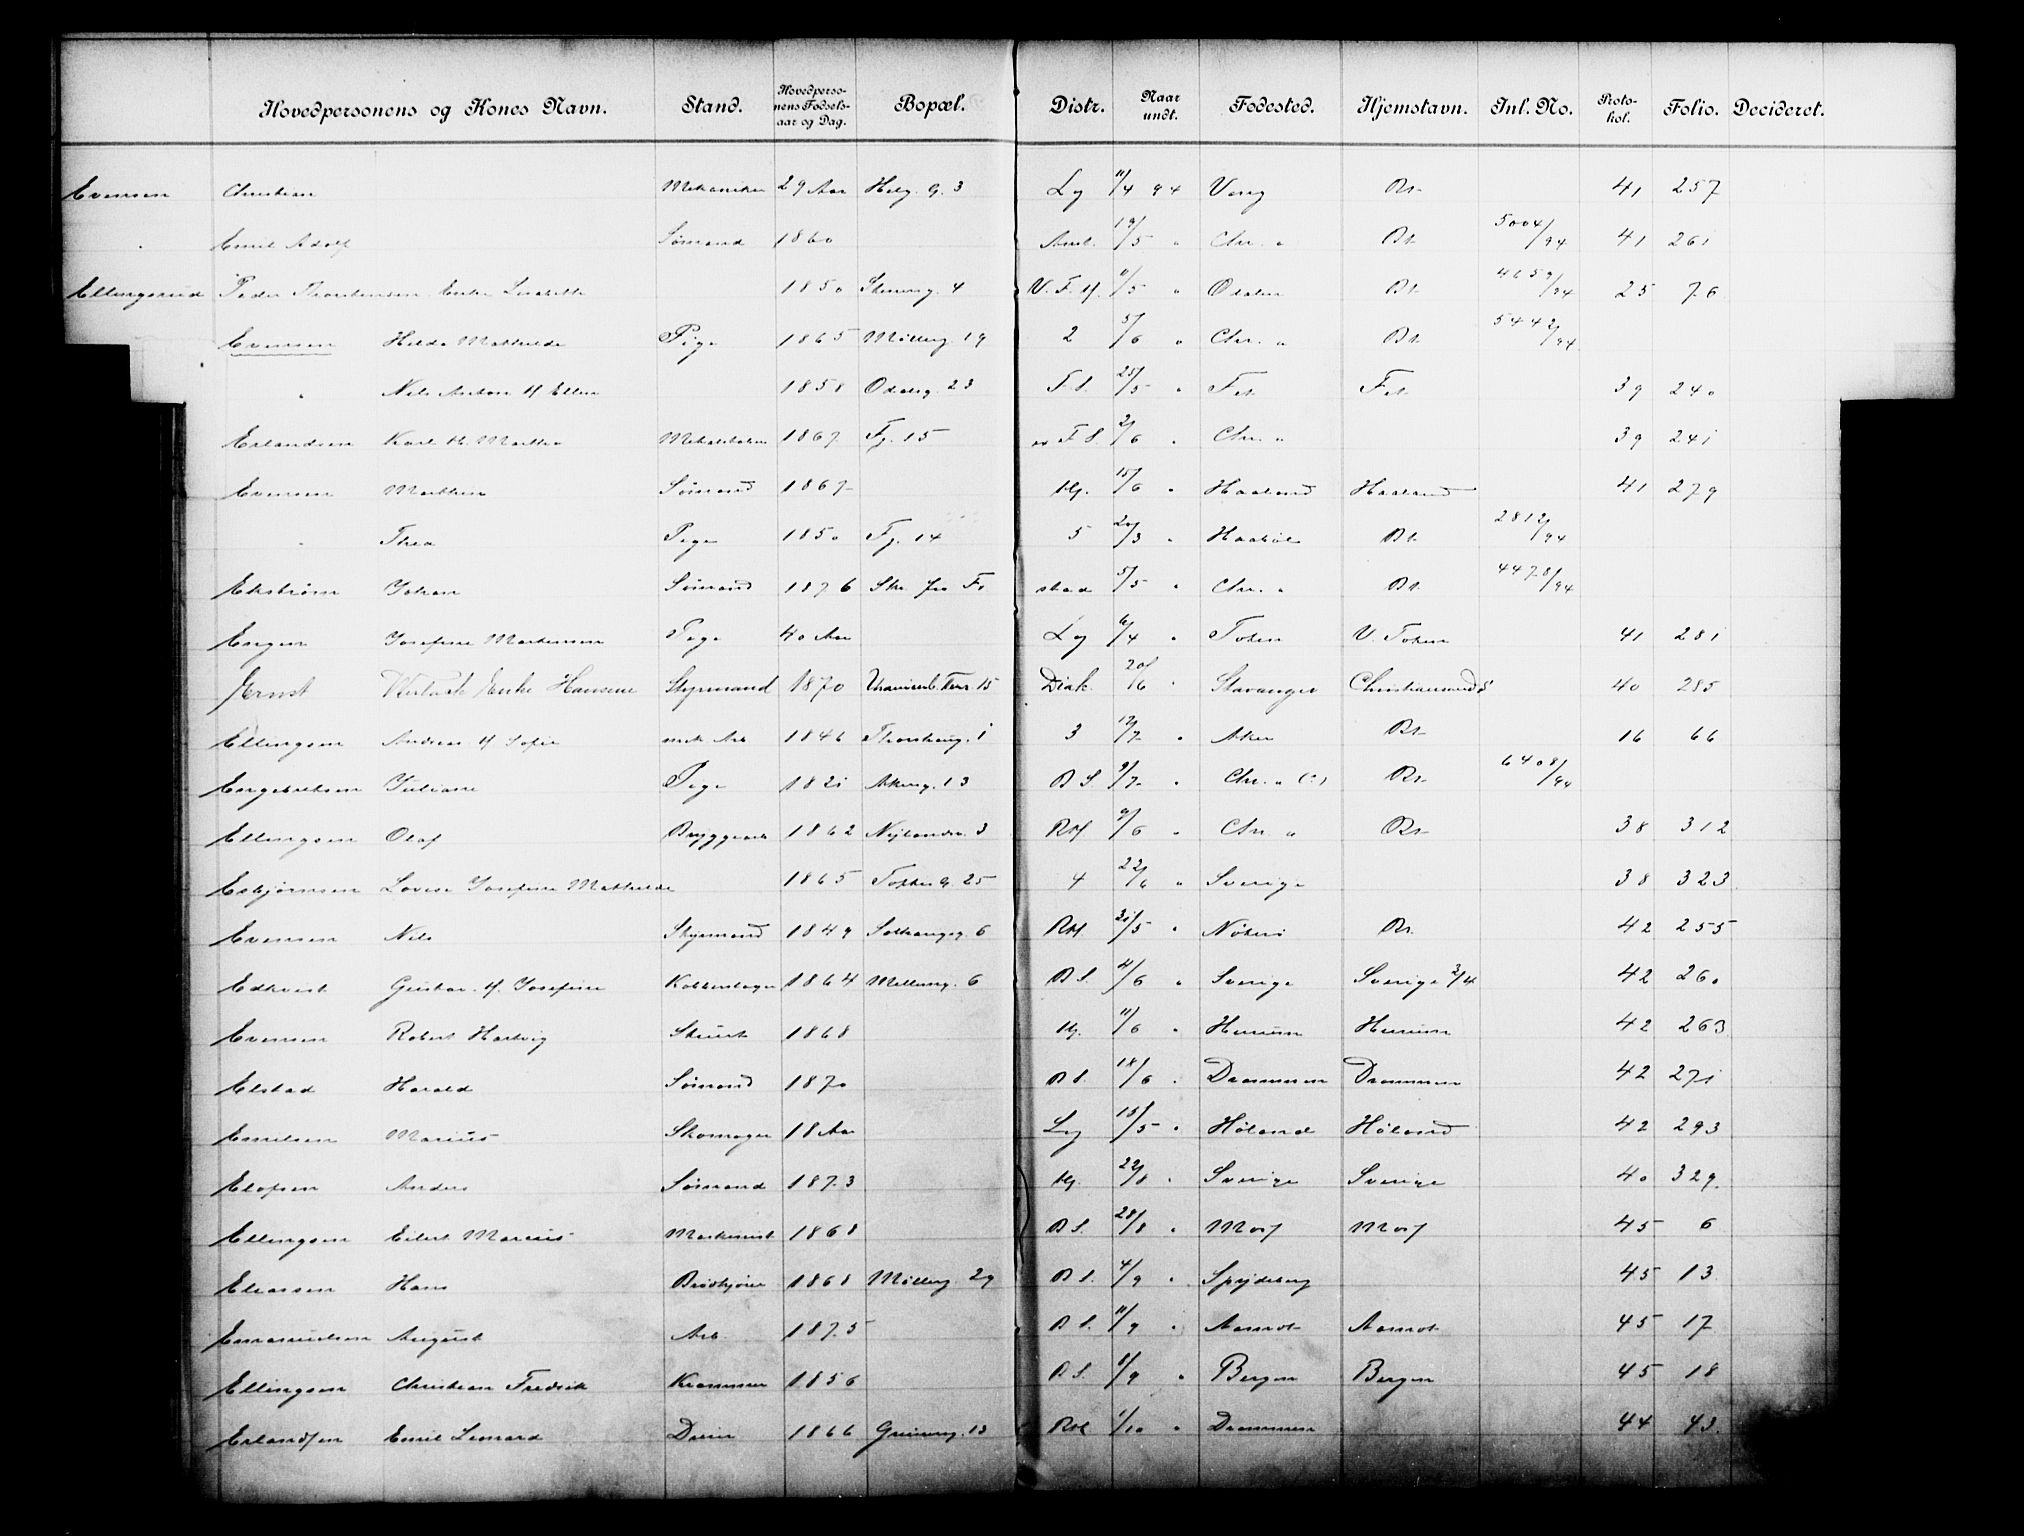 Hovedpersonens og Kones Navn. Stand. Hovedpersonens Fødselsaar og Dag. Bopæl. Distr. Naar undt. Fødested. Hjemstavn. Inl. No. Protokol. Folio. Decideret.
Evensen Christian Mekaniker 29 Aar Helg. G. 3 Lg 11/4 94 Vang Bt. 41 257
" Emil Adolf Sömand 1860 Amt. 19/5 " Chr. a Bt. 5004/94 41 261
Ellingsrud Peder Thorstensen Enke Lisabeth 1850 Steensg. 4 V. F. H. 11/5 " Odalen Bt. 4659/94 25 76
Evensen Hilda Mathilde Pige 1865 Mölleng. 19 2 5/6 " Chr. a Bt. 5442/94
" Nels Anton H Ellen 1858 Odalsg. 23 F S. 25/5 " Fet Fet 39 240
Erlandsen Karl H. Martha 1867 Fj. 15 F S 2/6 " Chr. a 39 241
Evensen Matheus Sömand 1867 Hj. 15/6 " Haaland Haaland 41 279
" Thea Pige 1850 Fj. 14 5 20/3 " Haaböl Bt. 2812/94
Ekström Johan Sömand 1876 stad 5/5 " Chr. a Bt. 4478/94
Engen Josefine Martinsen Pige 40 Aar Lg 6/4 " Toten V. Toten 41 281
Ernst Enke Hansine Styrmand 1870 Universit. 15 Diak. 20/6 " Stavanger Christianssunds 40 285
Ellingsen Andreas H Sofie mek Arb 1846 Thorshaug. 1 3 12/7 " Aker Bt. 16 66
Engebretsen Juliane Pige 1821 Akersg. 13 B S. 9/7 " Chr. a (?) Bt. 6408/94
Ellingsen Olaf Bryggearb 1862 Nylandsv. 3 RH 9/6 " Chr. a Bt. 38 312
Esbjörnsen Lovise Josefine Mathilde 1865 Toftes G. 25 4 22/6 " Sverige 38 323
Evensen Nils Styrmand 1849 Solhaugsg. 6 RH. 31/5 " Bt. 42 255
Edkvist Gustav. H. Josefine 1864 Mölleng. 6 B S. 4/6 " Sverige Sverige 3/4 42 260
Evensen Robert Hartvig Stuert 1868 Hj. 11/6 " Hurum Hurum 42 263
Elstad Harald Sömand 1870 B S. 18/6 " Drammen Drammen 42 271
Emilsen Marius Skomager 18 Aar Lg 15/5 " Höland Höland 42 293
Elofsen Anders Sömand 1873 Hj. 22/8 " Sverige Sverige 40 329
Ellingsen Eilert Marius Maskinist 1868 B S. 28/8 " Moss Moss 45 6
Eliassen Hans Brödkjörer 1868 Mölleng. 29 B S. 4/9 " Spydeberg 45 13
Emanuelsen August Arb 1875 B S. 11/9 " Aamot Aamot 45 17
Ellingsen Christian Fredrik Krammer 1856 B S. 8/9 " Bergen Bergen 45 18
Erlandsen Emil Leonard 1866 Grünerg. 13 RH 1/10 " Drammen 44 43